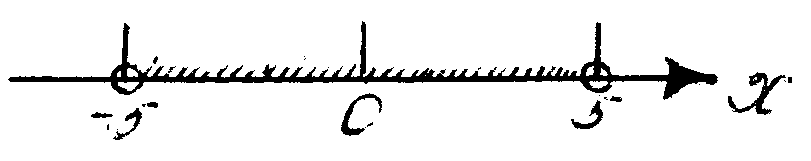 -5 0 5 x